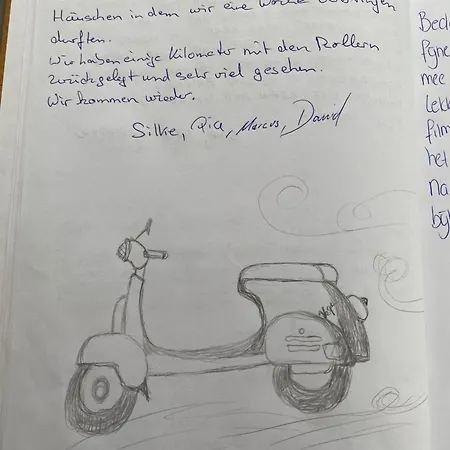 Häuschen in dem wir eine Woche verbringen
durften.
Wir haben einige Kilometer mit den Rollern
zurückgelegt und sehr viel gesehen.
Wir kommen wieder.
Silke, Pia, Marcus, David
Bed
fijne
mee
lekk
film
het
na
bij